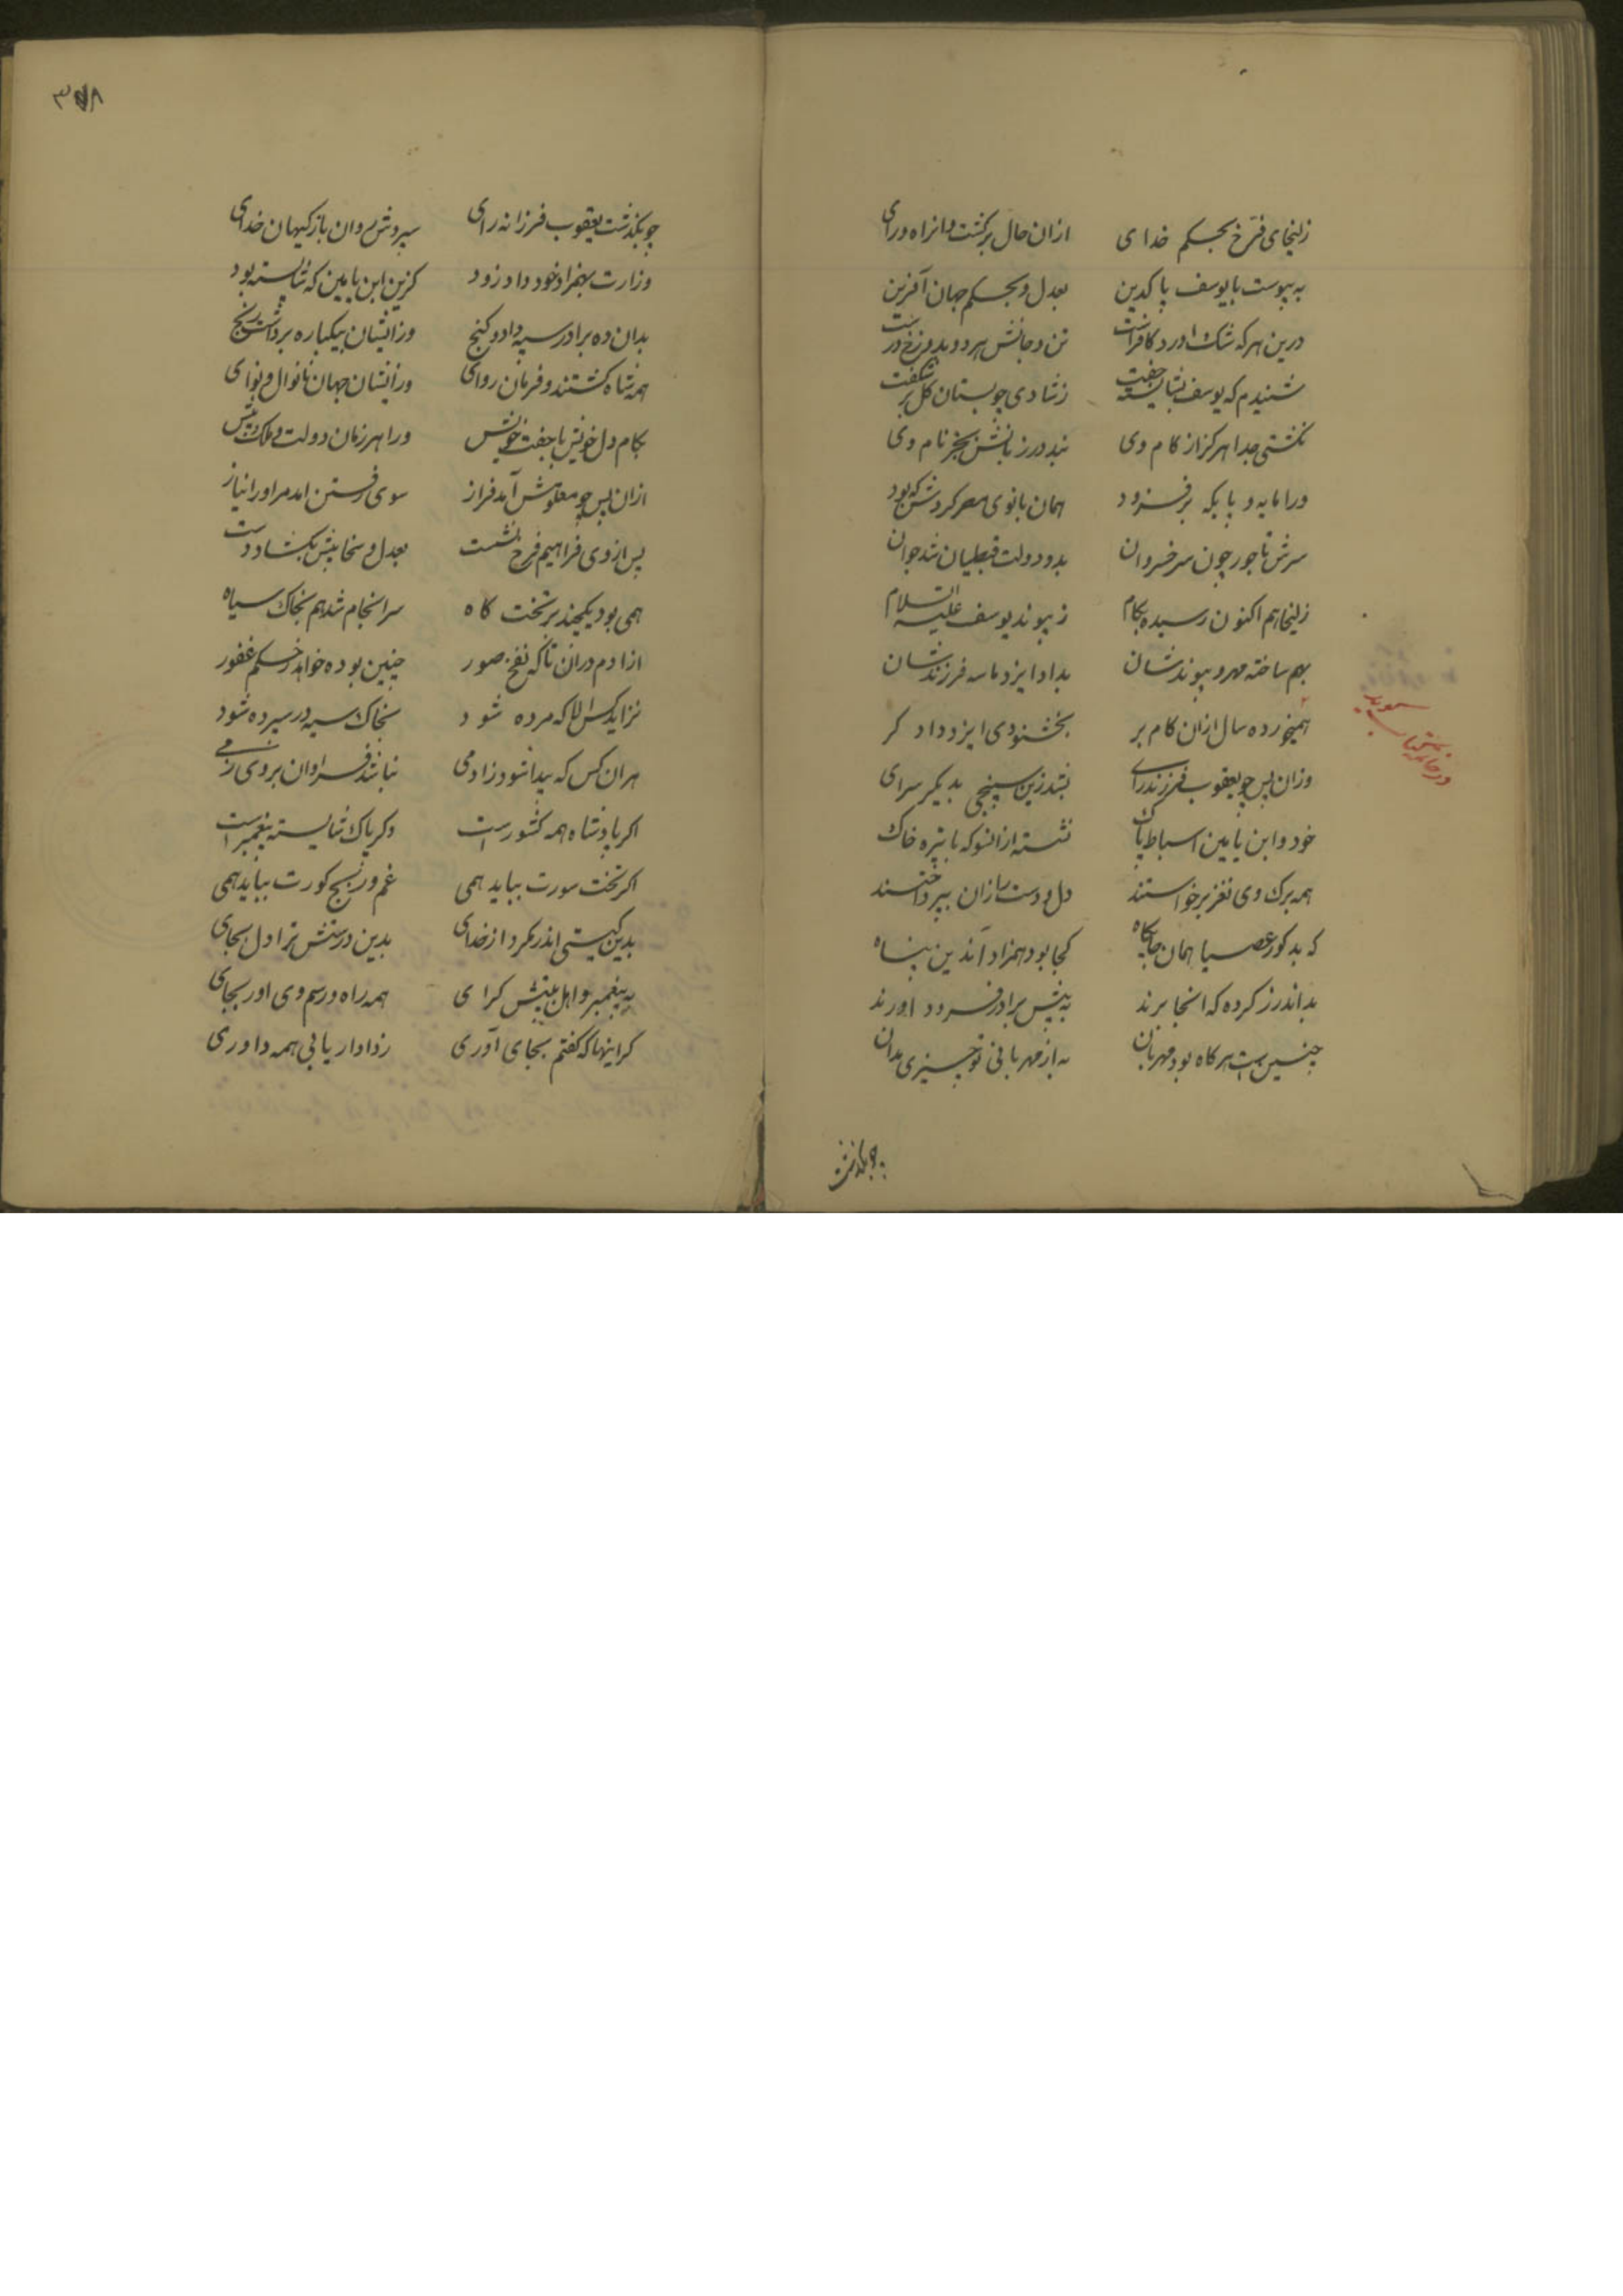 زلیخای فرخ بحکم خدای ازان حال برگشت وانراه ورای
به پیوست با یوسف پاکدین بعدل و بحکم جهان آفرین
درین هرکه شک اورد کافرست تن و جانش هر دو بدوزخ درست
شنیدم که یوسف بشایسته جفت ز شادی چو بستان گل بر شکفت
نگشتی جدا هرگز از کام وی نبد در زبانش بجز نام وی
ورا مایه و پایکه برفزود همان بانوی مصر کردش که بود
سرش تاجور چون سر خسروان بدو دولت قبطیان شد جوان
زلیخا هم اکنون رسیده بکام ز پیوند یوسف علیه السلام
بهم ساخته مهر و پیوندشان بداد ایزد ما سه فرزندشان
همیخورد ده سال ازان کام بر بخشنودی ایزد دادگر
وزان پس چو یعقوب فرزند رای بشد زین سپنجی بدیگر سرای
خود و ابن یامین اسباط پاک نشسته ازانسو که با تیره خاک
همه برک وی نغز برخواستند دل و دست ازان بپرداختند
که بد کور عصیا همان جایگاه کجا بود همزاد آندین پناه
بد اندرز کرده که انجا برند به پیش برادر فرود اورند
چنین است هر گاه بود مهربان به از مهربانی تو چیزی مدان
چو بگذشت
۳۷۸
چو بگذشت یعقوب فرزانه رای سپردش روان باز کیهان خدای
وزارت بهمزاد خود داد زود گزین ابن یامین که شایسته بود
بدان ده برادر سپه داد و گنج وزایشان بیکباره برداشت رنج
همه شاه گشتند و فرمان روای وزایشان جهان با نوال و نوای
بکام دل خویش با جفت خویش ورا هر زمان دولت و ملک بیش
ازان پس چو معلومش آمد فراز سوی رفتن امد مر او را نیاز
پس از وی فراهیم فرخ نشست بعدل و سخا پیش بگشاد دست
همی بود یکچند بر تخت گاه سرانجام شد هم بخاک سیاه
از ادم دران تا که نفخ صور چنین بوده خواهد ز حکم غفور
نزاید کس الا که مرده شود بخاک سیه در سپرده شود
هران کس که پیدا شود زادمی نباشد فراوان بروی زمی
اگر پادشاه همه کشورست وگر پاک شایسته پیغمبر است
اگر تخت سورت بباید همی غم و رنج کورت بباید همی
بدین گیتی اندر مکرد از خدای بدین درستش ترا دل بجای
به پیغمبر و اهل بیتش گرای همه راه و رسم وی اور بجای
گر اینها که گفتم بجای آوری ز دادار یابی همه داوری